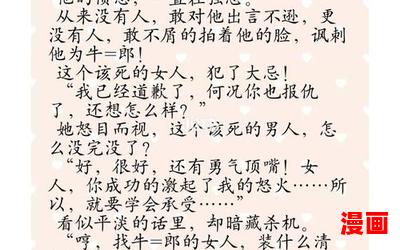 他的愤怒，一直在强忍。
从来没有人，敢对他出言不逊，更
没有人，敢不屑的拍着他的脸，讽刺
他为牛=郎！
这个该死的女人，犯了大忌！
“我已经道歉了，何况你也报仇
了，还想怎么样？”
她怒目而视，这个该死的男人，怎
么没完没了？
“好，很好，还有勇气顶嘴！女
人，你成功的激起了我的怒火……所
以，就要学会承受……”
看似平淡的话里，却暗藏杀机。
“哼，找牛=郎的女人，装什么清
漫画